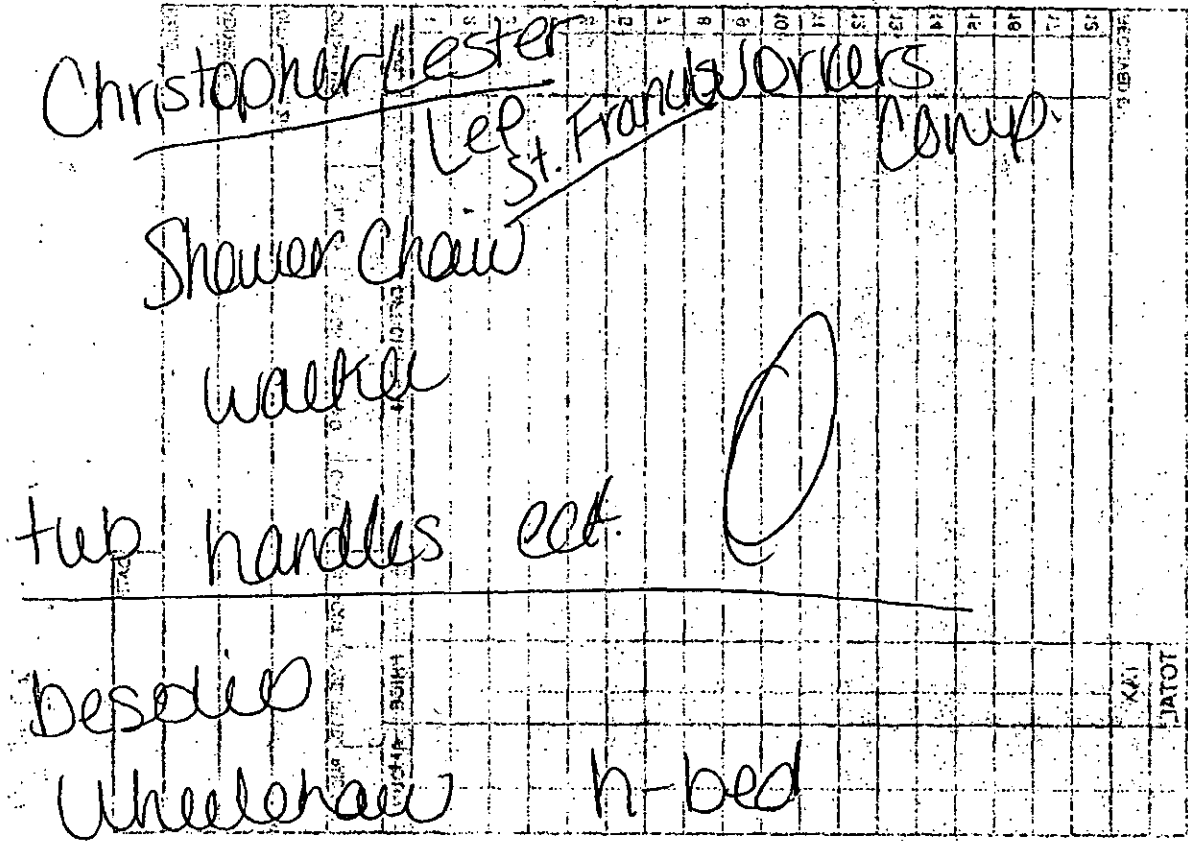 Christopher Lester
Lee St. Francis Workers Comp.
Shower Chair
walker
tub handles ect.
Wheelchair h-bed
TOTAL
TAX